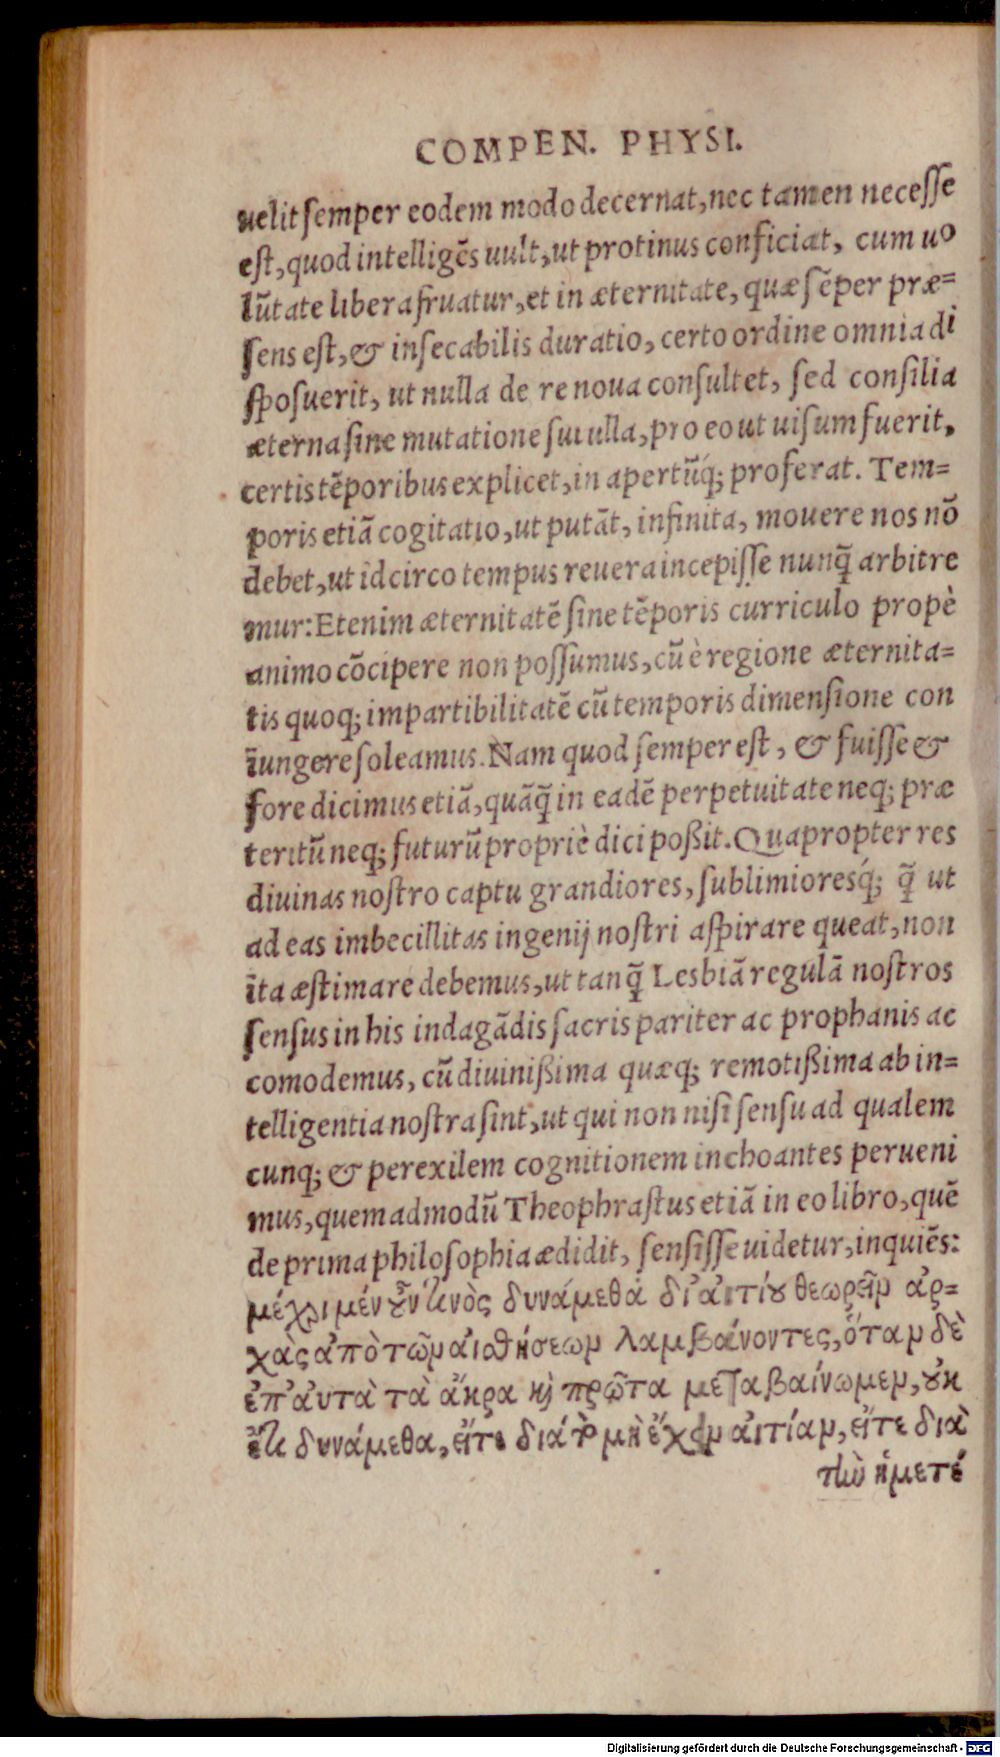 COMPEN. PHYSI.
uelit ſemper eodem modo decernat, nec tamen neceſſe
eſt, quod intelligẽs uult, ut protinus conficiat, cum uo
lũtate libera fruatur, et in æternitate, quæ ſẽper præ=
ſens eſt, & inſecabilis duratio, certo ordine omnia di
ſpoſuerit, ut nulla de re noua conſultet, ſed conſilia
æterna ſine mutatione ſui ulla, pro eo ut uiſum fuerit,
certis tẽporibus explicet, in apertũq́; proferat. Tem=
poris etiã cogitatio, ut putãt, infinita, mouere nos nõ
debet, ut idcirco tempus reuera incepiſſe nunq̃ arbitre
mur: Etenim æternitatẽ ſine tẽporis curriculo propè
animo cõcipere non poſſumus, cũ è regione æternita=
tis quoq; impartibilitatẽ cũ temporis dimenſione con
iungere ſoleamus. Nam quod ſemper eſt, & fuiſſe &
fore dicimus etiã, quãq̃ in eadẽ perpetuitate neq; præ
teritũ neq; futurũ propriè dici poßit. Quapropter res
diuinas noſtro captu grandiores, ſublimioresq́; q̃ ut
ad eas imbecillitas ingenij noſtri aſpirare queat, non
ita æſtimare debemus, ut tanq̃ Lesbiã regulã noſtros
ſenſus in his indagãdis ſacris pariter ac prophanis ac
comodemus, cũ diuinißima quæq; remotißima ab in=
telligentia noſtra ſint, ut qui non niſi ſenſu ad qualem
cunq; & perexilem cognitionem inchoantes perueni
mus, quemadmodũ Theophraſtus etiã in eo libro, quẽ
de prima philoſophia ædidit, ſenſiſſe uidetur, inquiẽs:
μέχρι μέν ȣ̓͂ν τινὸς δυνάμεθα δι' ἀιτίȣ θεωρεῖν ἀρ=
χὰς ἀπὸ τῶν ἀισθήσεων λαμβάνοντες, ὅταν δὲ
ἐπ' ἀυτὰ τὰ ἄκρα κ̀ πρῶτα μεταβαίνωμεν, ȣ̓κ
ἔτι δυνάμεθα, εἴτε διά τὸ μὴ ἔχειν ἀιτίαν, εἴτε διὰ
τὴν ἡμετέ
Digitalisierung gefördert durch die Deutsche Forschungsgemeinschaft - DFG